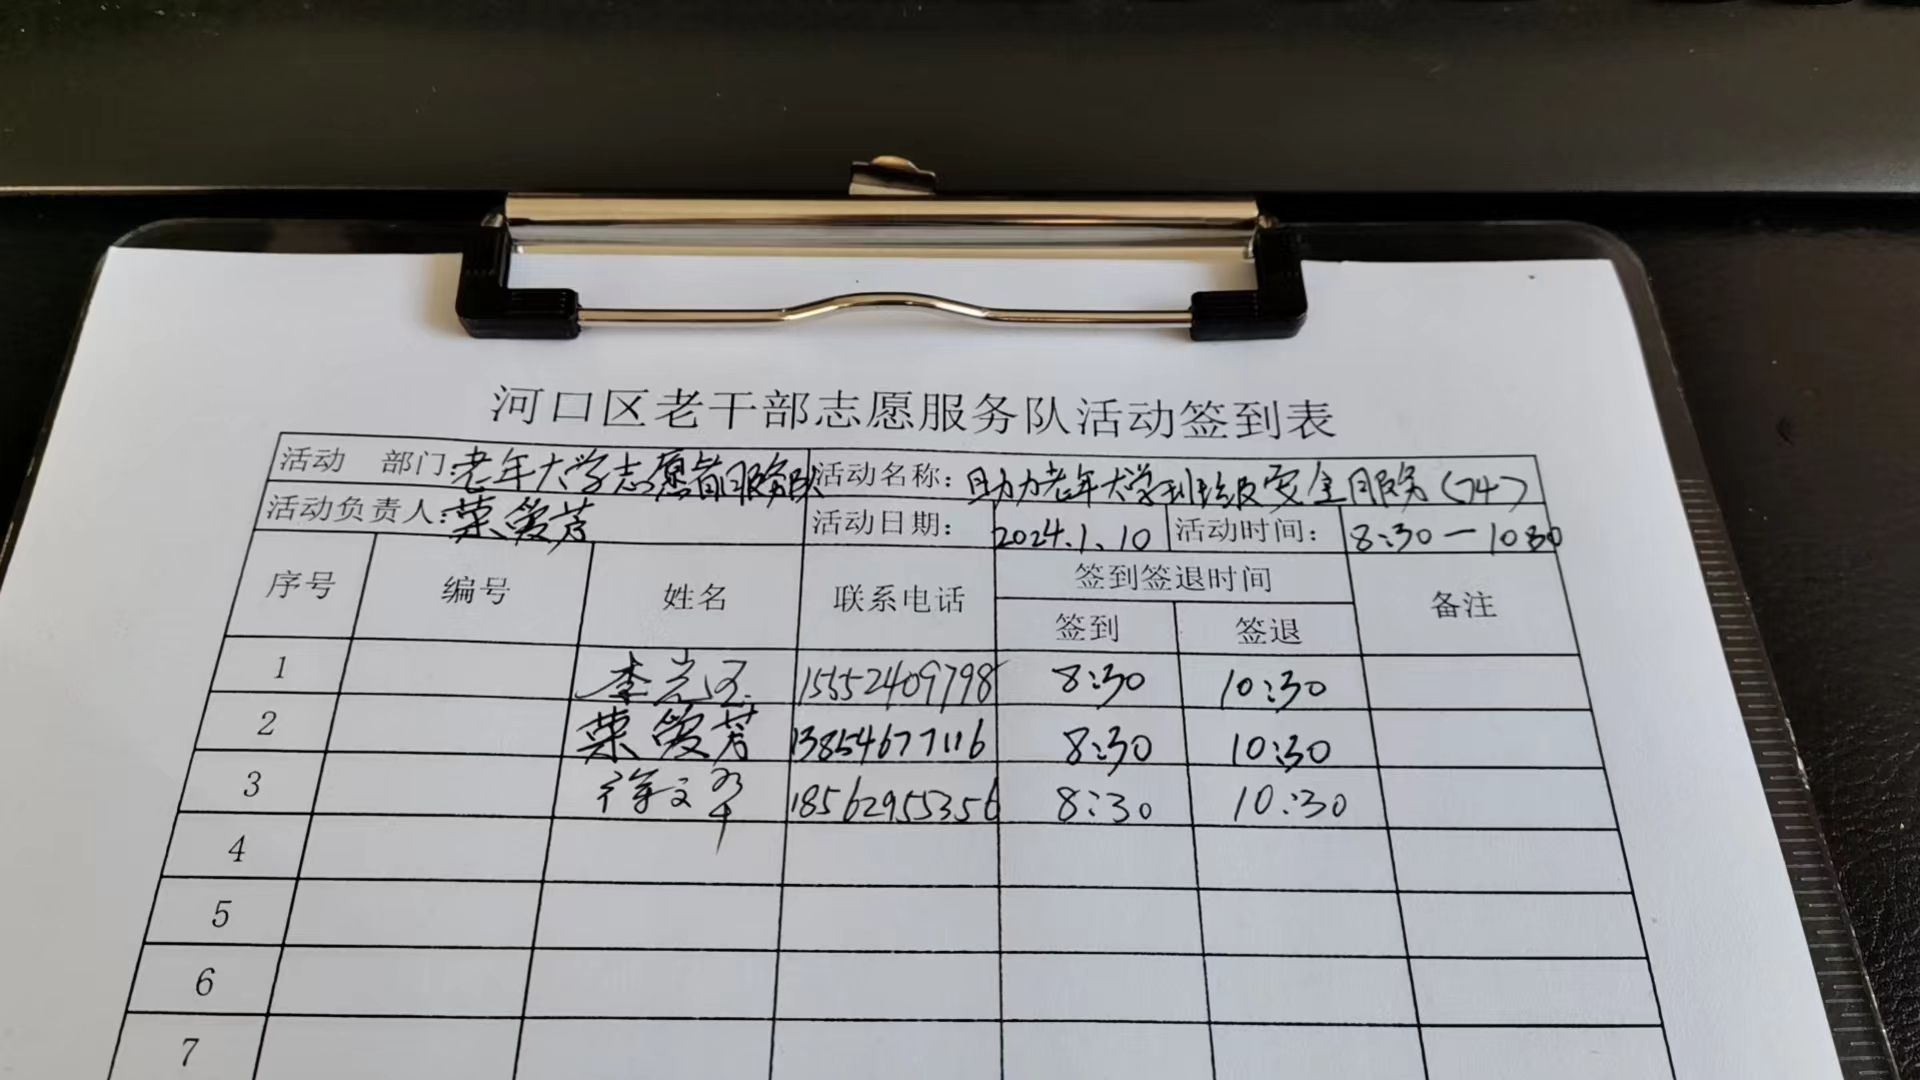 河口区老干部志愿服务队活动签到表
活动 部门:老年大学志愿者服务队 活动名称:助力老年大学班级安全服务(74)
活动负责人: 活动日期: 2024.1.10 活动时间: 8:30—10:30
序号 编号 姓名 联系电话 签到签退时间 备注
签到 签退
1 李光 15552409798 8:30 10:30
2 13854677116 8:30 10:30
3 徐文 18562955356 8:30 10:30
4
5
6
7